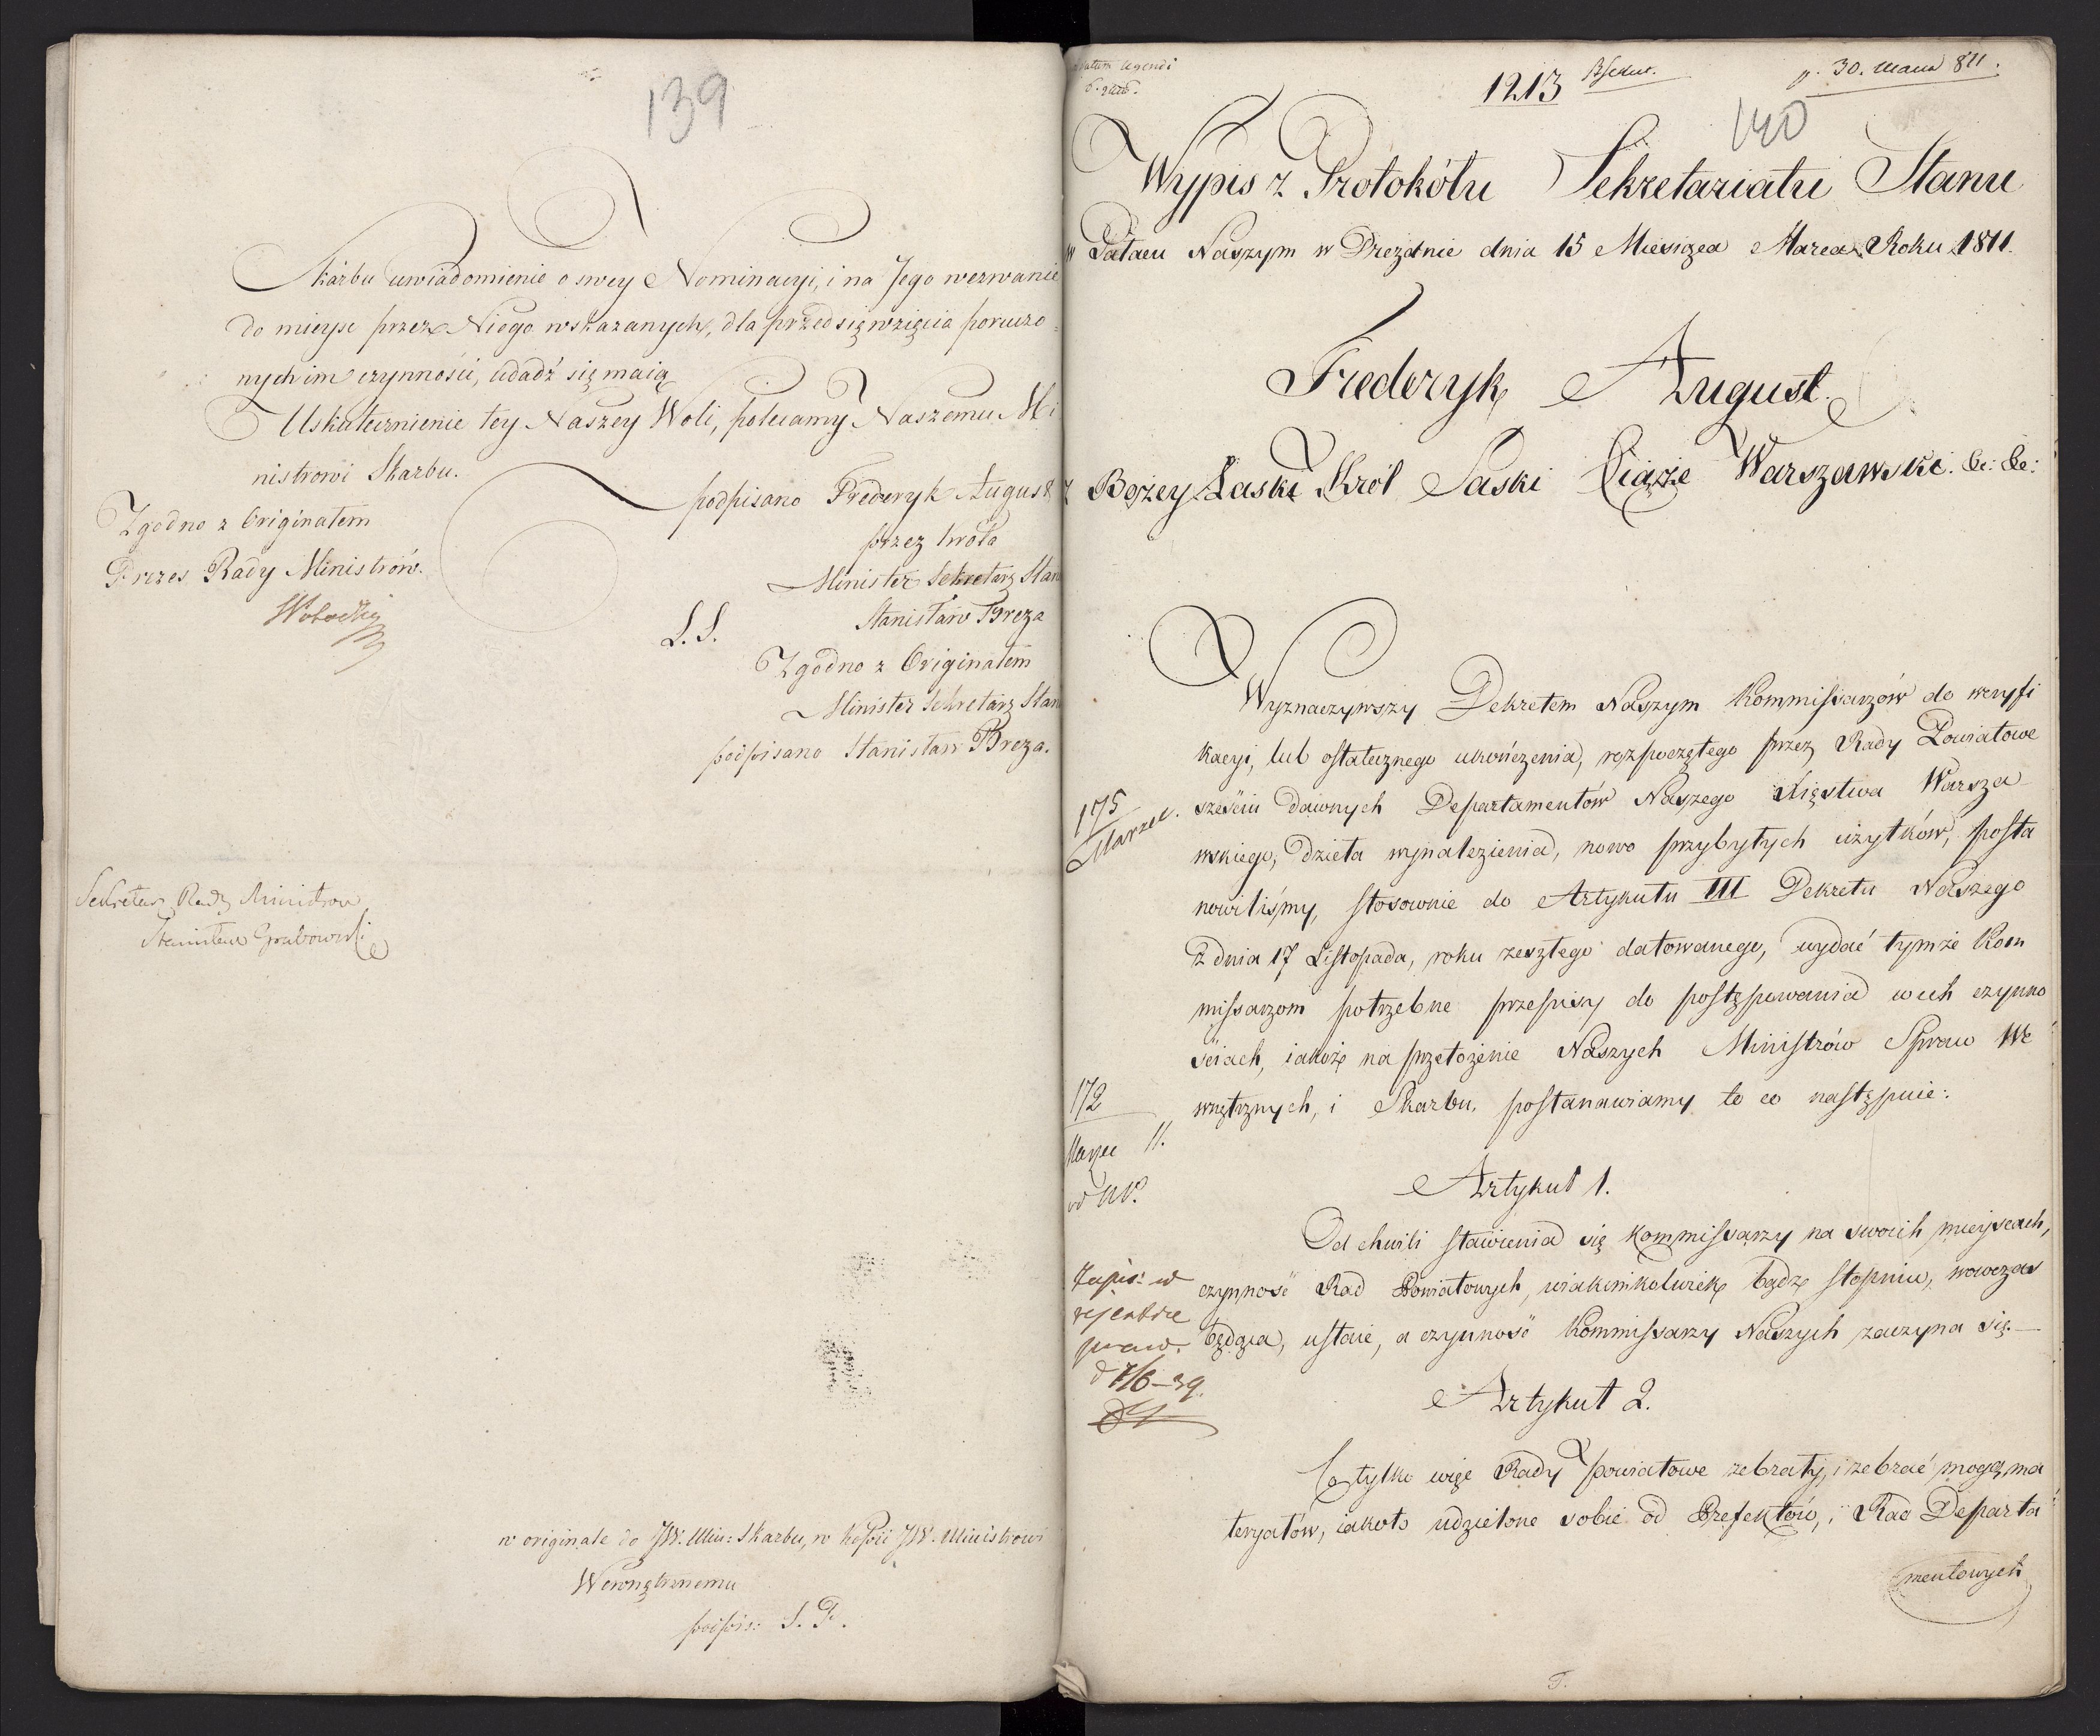 139
Skarbu uwiadomienie o swey Nominacyi, i na Jego wezwanie
do mieysc przez Niego wskazanych, dla przedsięwzięcia poruczo=
nych im czynności, udadź się maią
Uskutecznienie tey Naszey Woli, polecamy Naszemu Mi
nistrowi Skarbu.
podpisano Frederyk August
przez Króla
Minister Sekretarz Stanu
Stanisław Breza
L. S.
Zgodno z Originałem
Minister Sekretarz Stanu
podpisano Stanisław Breza.
Zgodno z Originałem
Prezes Rady Ministrów.
Sekretarz Rady Ministrow
Stanisław Grabowski
w originale do JW. Min: Skarbu, w kopii JW. Ministrowi
Wewnętrznemu
podpis: S. P.
1213
p. 30. Marca 811.
140
Wypis z Protokółu Sekretariatu Stanu
w Pałacu Naszym w Dreznie dnia 15 Miesiąca Marca Roku 1811.
Frederyk August.
z Bożey Łaski Król Saski Xiąże Warszawski. &c: &c:
Wyznaczywszy Dekretem Naszym Kommissarzów do weryfi
kacyi, lub ostatecznego ukończenia, rozpoczętego przez Rady Powiatowe
sześciu dawnych Departamentów Naszego Xięstwa Warsza
wskiego, dzieła wynalezienia, nowo przybytych użytków, posta
nowiliśmy, stosownie do Artykułu III Dekretu Naszego
z dnia 17 Listopada, roku zeszłego datowanego, wydać tymże Kom
missarzom potrzebne przepisy do postępowania w ich czynno
ściach, iakoż na przełożenie Naszych Ministrów Spraw We
wnętrznych, i Skarbu, postanawiamy to co następuie:
175
Marzec.
172
Marzec 11.
Artykuł 1.
Od chwili stawienia się Kommissarzy na swoich mieyscach,
czynność Rad Powiatowych, w iakimkolwiek bądz stopniu, wowczas
będzca, ustaie, a czynność Kommissarzy Naszych zaczyna się.—
Zapis: w
rejestrze
praw.
d 7/6–39.
Artykuł 2.
Co tylko więc Rady powiatowe zebrały, i zebrać mogą ma
teryałów, iakoto udzielone sobie od Prefektów, i Rad Departa
mentowych